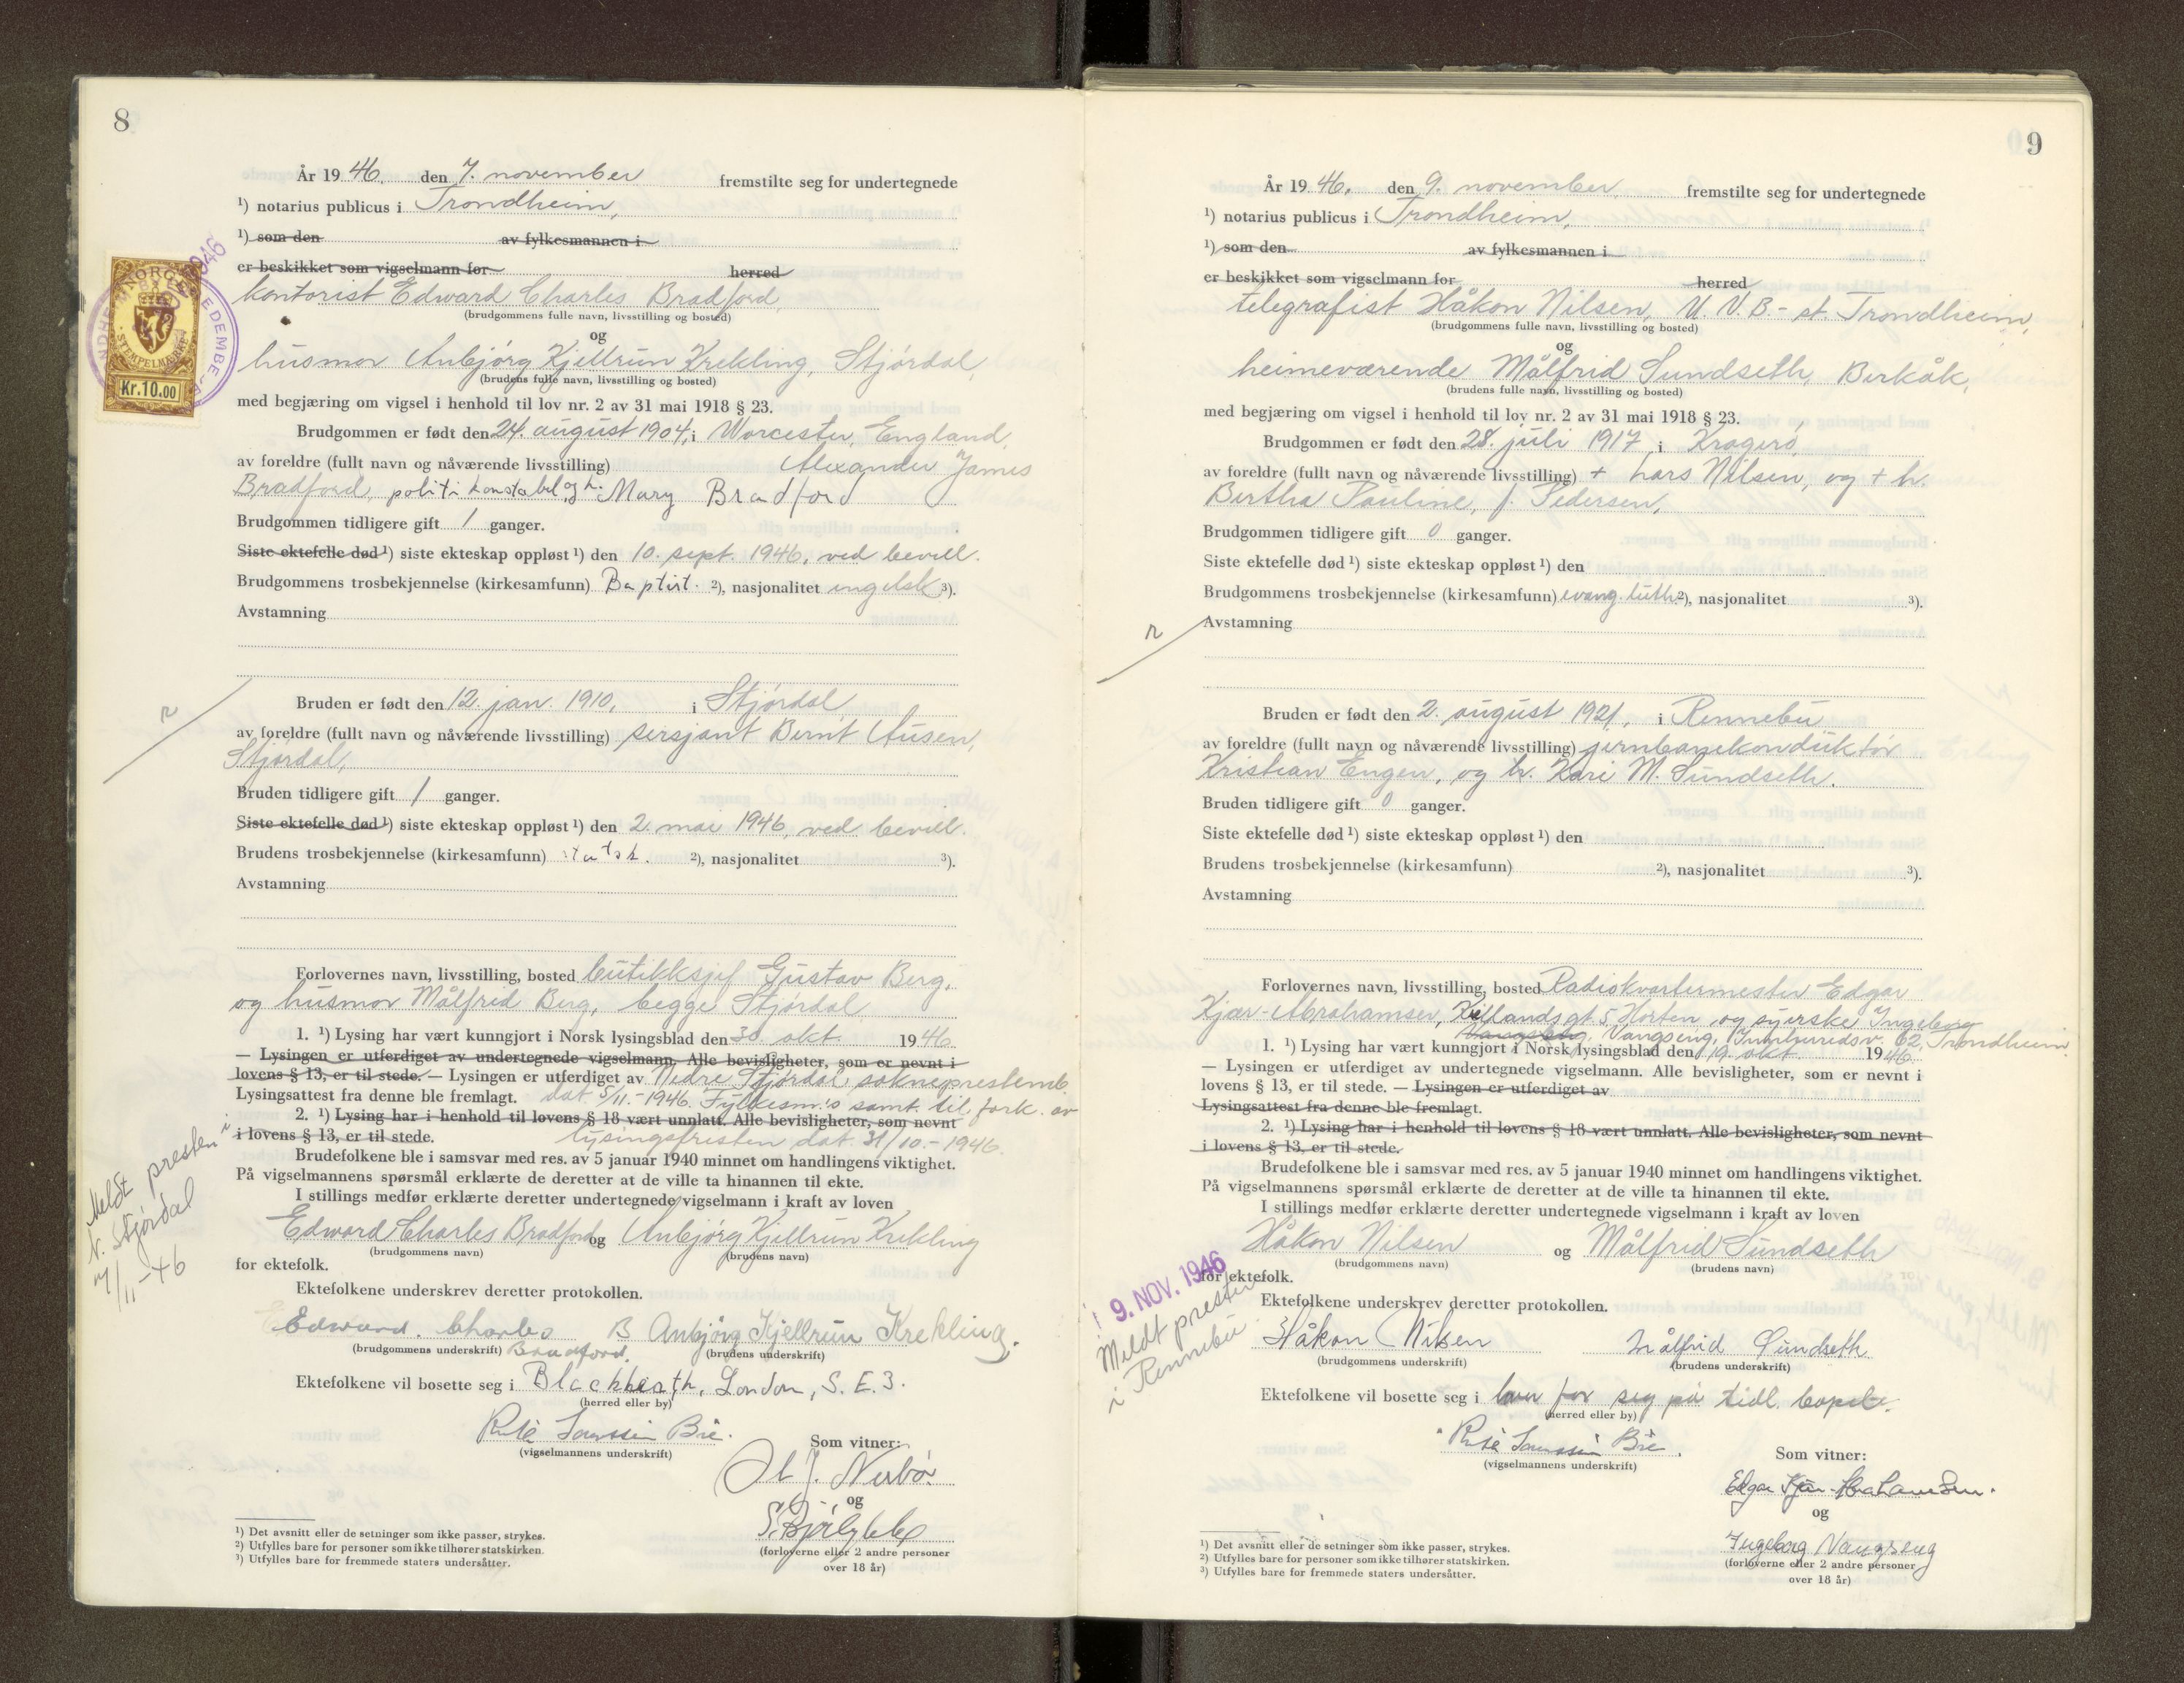 8
År 1946. den 7. november fremstilte seg for undertegnede
¹) notarius publicus i Trondheim,
¹) som den av fylkesmannen i
er beskikket som vigselmann for herred
kontorist Edward Charles Bradford,
(brudgommens fulle navn, livsstilling og bosted)
og
husmor Anbjørg Kjellrun Krekling, Stjørdal,
(brudens fulle navn, livsstilling og bosted)
med begjæring om vigsel i henhold til lov nr. 2 av 31 mai 1918 § 23.
Brudgommen er født den 24. august 1904, i Worcester, England,
av foreldre (fullt navn og nåværende livsstilling) Alexander James
Bradford, politikonstabel, og h. Mary Bradford
Brudgommen tidligere gift 1 ganger.
Siste ektefelle død ¹) siste ekteskap oppløst ¹) den 10. sept. 1946, ved bevill.
Brudgommens trosbekjennelse (kirkesamfunn) Baptist. ²), nasjonalitet engelsk ³).
Avstamning
Bruden er født den 12. jan. 1910, i Stjørdal,
av foreldre (fullt navn og nåværende livsstilling) sersjant Bernt Ausen,
Stjørdal,
Bruden tidligere gift 1 ganger.
Siste ektefelle død ¹) siste ekteskap oppløst ¹) den 2. mai 1946, ved bevill.
Brudens trosbekjennelse (kirkesamfunn) statsk. ²), nasjonalitet ³).
Avstamning
Forlovernes navn, livsstilling, bosted butikksjef Gustav Berg,
og husmor Målfrid Berg, begge Stjørdal
1. ¹) Lysing har vært kunngjort i Norsk lysingsblad den 30. okt. 1946
— Lysingen er utferdiget av undertegnede vigselmann. Alle bevisligheter, som er nevnt i
lovens § 13, er til stede. — Lysingen er utferdiget av Nedre Stjørdal sokneprestemb.
Lysingsattest fra denne ble fremlagt. dat. 5/11.-1946. Fylkesm.'s samt. til fork. av
2. ¹) Lysing har i henhold til lovens § 18 vært unnlatt. Alle bevisligheter, som nevnt
i lovens § 13, er til stede. lysingsfristen dat. 31/10.-1946.
Brudefolkene ble i samsvar med res. av 5 januar 1940 minnet om handlingens viktighet.
På vigselmannens spørsmål erklærte de deretter at de ville ta hinannen til ekte.
I stillings medfør erklærte deretter undertegnede vigselmann i kraft av loven
Edward Charles Bradford og Anbjørg Kjellrun Krekling
(brudgommens navn) (brudens navn)
for ektefolk.
Ektefolkene underskrev deretter protokollen.
Edward. Charles B Anbjørg Kjellrun Krekling.
(brudgommens underskrift) Bradford. (brudens underskrift)
Ektefolkene vil bosette seg i Blackheath, London, S. E. 3.
(herred eller by)
(vigselmannens underskrift)
Som vitner:
og
(forloverne eller 2 andre personer
over 18 år)
¹) Det avsnitt eller de setninger som ikke passer, strykes.
²) Utfylles bare for personer som ikke tilhører statskirken.
³) Utfylles bare for fremmede staters undersåtter.
NORGE
STEMPELMERKE
Kr.10.00
Meldt presten i
N. Stjørdal
7/11-46
9
År 1946. den 9. november, fremstilte seg for undertegnede
¹) notarius publicus i Trondheim,
¹) som den av fylkesmannen i
er beskikket som vigselmann for herred
telegrafist Håkon Nilsen, U. V. B. - st. Trondheim,
(brudgommens fulle navn, livsstilling og bosted)
og
heimeværende Målfrid Sundseth, Berkåk,
(brudens fulle navn, livsstilling og bosted)
med begjæring om vigsel i henhold til lov nr. 2 av 31 mai 1918 § 23.
Brudgommen er født den 28. juli 1917 i Kragerø
av foreldre (fullt navn og nåværende livsstilling) + Lars Nilsen, og + h.
Bertha Pauline, f. Pedersen,
Brudgommen tidligere gift 0 ganger.
Siste ektefelle død ¹) siste ekteskap oppløst ¹) den
Brudgommens trosbekjennelse (kirkesamfunn) evang. luth. ²), nasjonalitet ³).
Avstamning
Bruden er født den 2. august 1921, i Rennebu
av foreldre (fullt navn og nåværende livsstilling) jernbanekonduktør
Kristian Engen, og h. Kari M. Sundseth.
Bruden tidligere gift 0 ganger.
Siste ektefelle død ¹) siste ekteskap oppløst ¹) den
Brudens trosbekjennelse (kirkesamfunn) ²), nasjonalitet ³).
Avstamning
Forlovernes navn, livsstilling, bosted Radiokvartermester Edgar
Kjær-Abrahamsen, Killandsgt 5, Horten, og syerske Ingeborg
Vangseng, Innherredsv. 62, Trondheim.
1. ¹) Lysing har vært kunngjort i Norsk lysingsblad den 19. okt. 1946
— Lysingen er utferdiget av undertegnede vigselmann. Alle bevisligheter, som er nevnt i
lovens § 13, er til stede. — Lysingen er utferdiget av
Lysingsattest fra denne ble fremlagt.
2. ¹) Lysing har i henhold til lovens § 18 vært unnlatt. Alle bevisligheter, som nevnt
i lovens § 13, er til stede.
Brudefolkene ble i samsvar med res. av 5 januar 1940 minnet om handlingens viktighet.
På vigselmannens spørsmål erklærte de deretter at de ville ta hinannen til ekte.
I stillings medfør erklærte deretter undertegnede vigselmann i kraft av loven
Håkon Nilsen og Målfrid Sundseth
(brudgommens navn) (brudens navn)
for ektefolk.
Ektefolkene underskrev deretter protokollen.
Håkon Nilsen Målfrid Sundseth
(brudgommens underskrift) (brudens underskrift)
Ektefolkene vil bosette seg i hver for seg på tidl. bopel.
(herred eller by)
(vigselmannens underskrift)
Som vitner:
Edgar Kjær-Abrahamsen.
og
Ingeborg Vangseng
(forloverne eller 2 andre personer
over 18 år)
¹) Det avsnitt eller de setninger som ikke passer, strykes.
²) Utfylles bare for personer som ikke tilhører statskirken.
³) Utfylles bare for fremmede staters undersåtter.
9. NOV. 1946
Meldt presten
i Rennebu